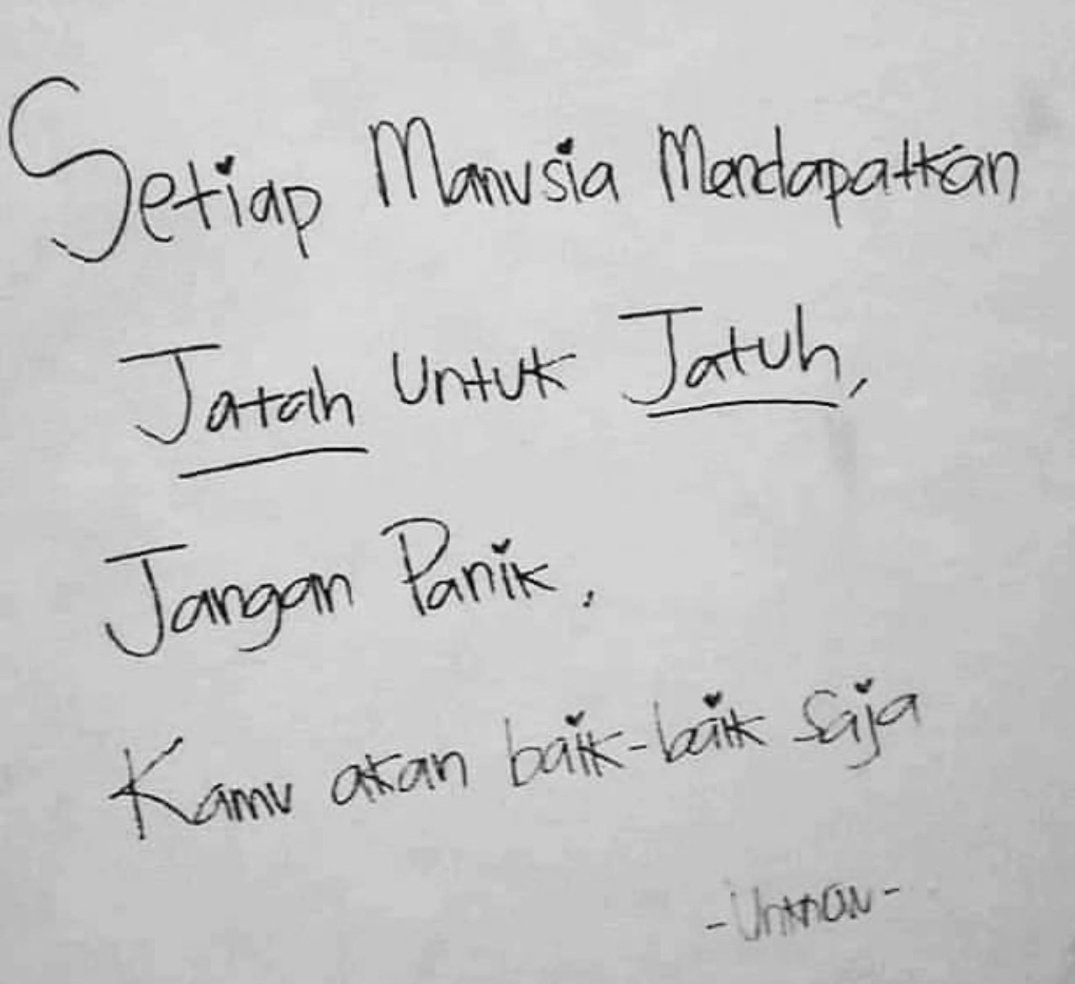 Setiap Manusia Mendapatkan
Jatah Untuk Jatuh,
Jangan Panik,
Kamu akan baik-baik Saja
-Unknow-